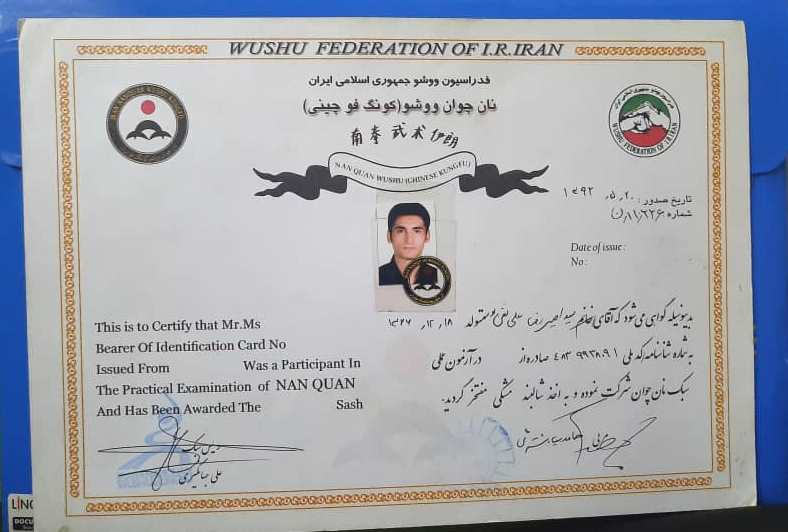 WUSHU FEDERATION OF I.R.IRAN
فدراسیون ووشو جمهوری اسلامی ایران
نان جوان ووشو(کونگ فو چینی)
南拳 武术 伊朗
NAN QUAN WUSHU (CHINESE KUNGFU)
WUSHU FEDERATION OF I.R.IRAN
تاریخ صدور : ۱۳۹۲ ٫۵ ٫۲۰
شماره
Date of issue :
No :
بدینوسیله گواهی می شود که آقای/خانم سید امیررضا متولد ۱۳۷۶ ٫۱۲ ٫۱۸
به شماره شناسنامه/کد ملی صادره از در آزمون عملی
سبک نان جوان شرکت نموده و به اخذ شالبند مشکی مفتخر گردید.
This is to Certify that Mr.Ms
Bearer Of Identification Card No
Issued From Was a Participant In
The Practical Examination of NAN QUAN
And Has Been Awarded The Sash
رییس سبک
LING
DOCUM